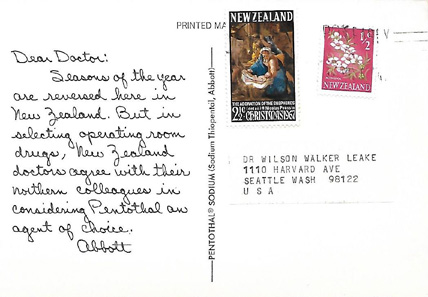 PRINTED MA
NEW ZEALAND
THE ADORATION OF THE SHEPHERDS
Nicolas Poussin
2½c CHRISTMAS 1967
½c
NEW ZEALAND
Dear Doctor:
Seasons of the year
are reversed here in
New Zealand. But in
selecting operating room
drugs, New Zealand
doctors agree with their
northern colleagues in
considering Pentothal an
agent of choice.
Abbott
PENTOTHAL® SODIUM (Sodium Thiopental, Abbott)
DR WILSON WALKER LEAKE
1110 HARVARD AVE
SEATTLE WASH 98122
U S A